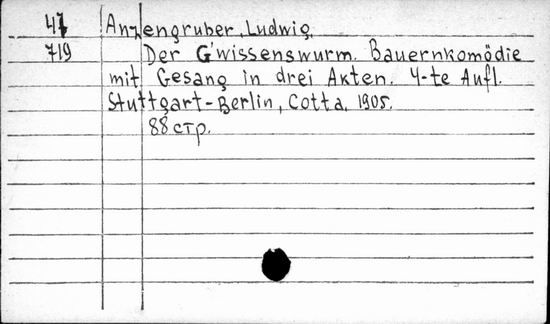 47 Anzengruber, Ludwig.
719 Der G'wissenswurm. Bauernkomödie
mit Gesang in drei Akten. 4-te Aufl.
Stuttgart-Berlin, Cotta, 1905.
88 стр.